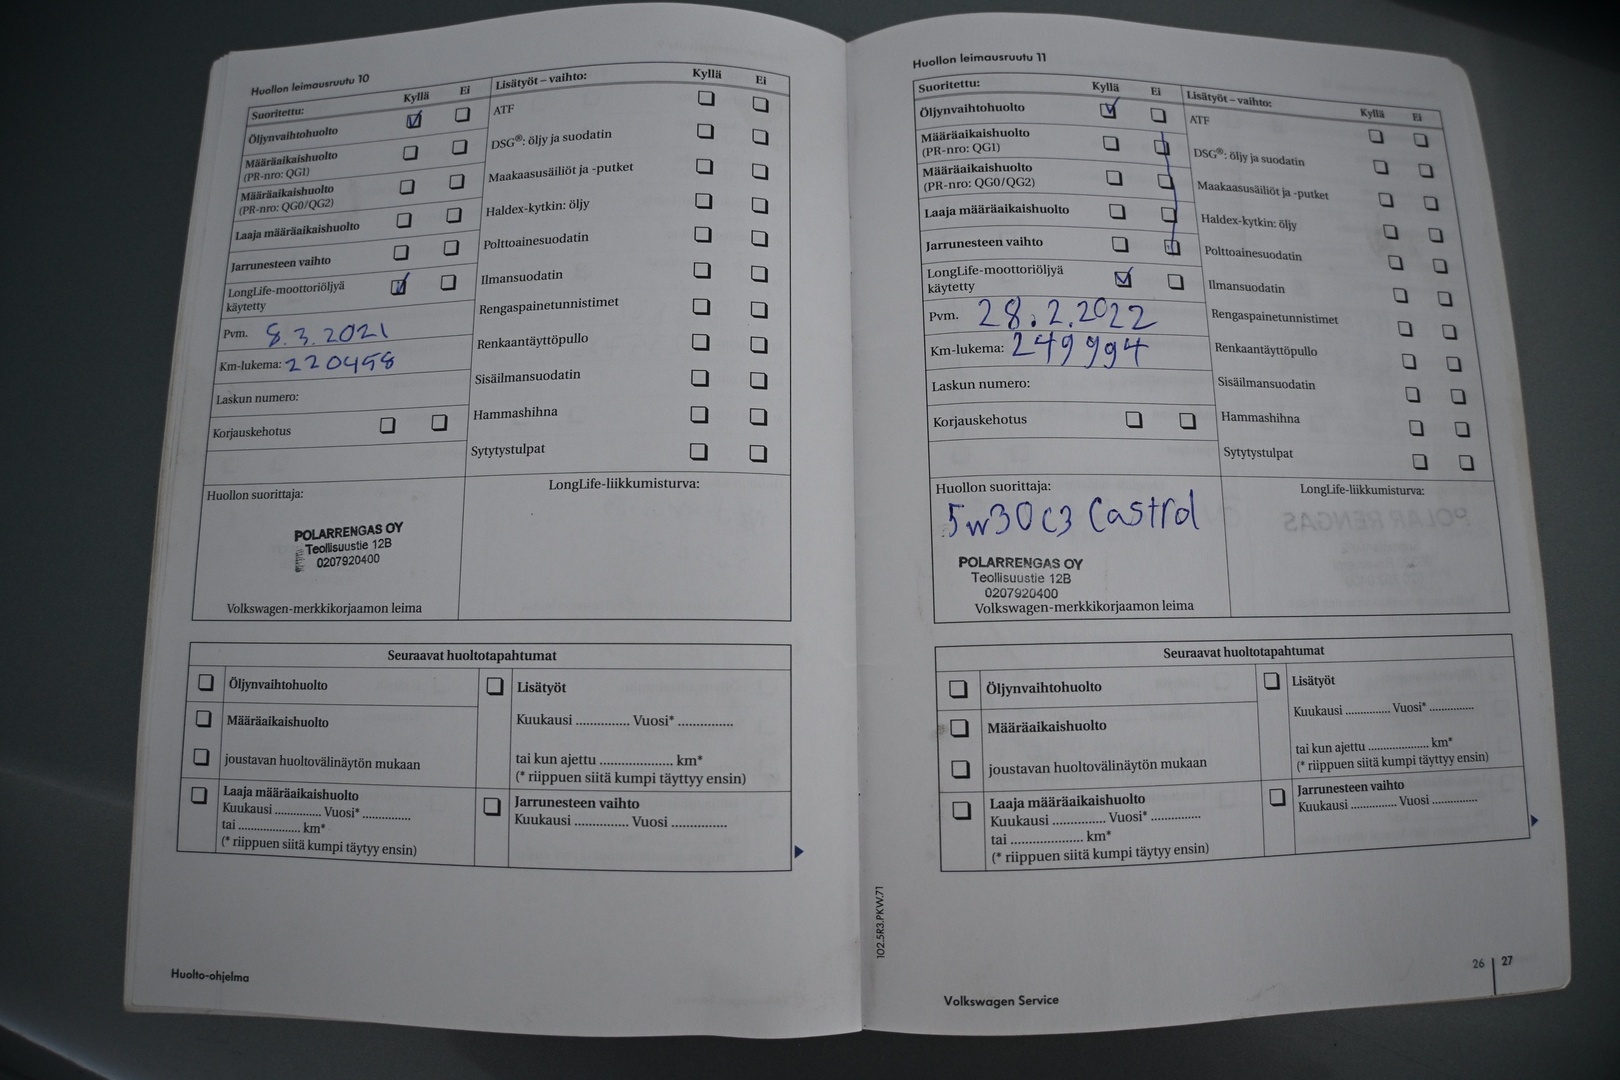 Huollon leimausruutu 10
Suoritettu: Kyllä Ei
Öljynvaihtohuolto
Määräaikaishuolto
(PR-nro: QG1)
Määräaikaishuolto
(PR-nro: QG0/QG2)
Laaja määräaikaishuolto
Jarrunesteen vaihto
LongLife-moottoriöljyä
käytetty
Pvm. 8.3.2021
Km-lukema: 220458
Laskun numero:
Korjauskehotus
Lisätyöt – vaihto: Kyllä Ei
ATF
DSG®: öljy ja suodatin
Maakaasusäiliöt ja -putket
Haldex-kytkin: öljy
Polttoainesuodatin
Ilmansuodatin
Rengaspainetunnistimet
Renkaantäyttöpullo
Sisäilmansuodatin
Hammashihna
Sytytystulpat
Huollon suorittaja:
POLARRENGAS OY
Teollisuustie 12B
0207920400
Volkswagen-merkkikorjaamon leima
LongLife-liikkumisturva:
Seuraavat huoltotapahtumat
Öljynvaihtohuolto
Määräaikaishuolto
joustavan huoltovälinäytön mukaan
Laaja määräaikaishuolto
Kuukausi .............. Vuosi* ..............
tai .................... km*
(* riippuen siitä kumpi täytyy ensin)
Lisätyöt
Kuukausi .............. Vuosi* ..............
tai kun ajettu .................... km*
(* riippuen siitä kumpi täyttyy ensin)
Jarrunesteen vaihto
Kuukausi .............. Vuosi ..............
Huolto-ohjelma
Huollon leimausruutu 11
Suoritettu: Kyllä Ei
Öljynvaihtohuolto
Määräaikaishuolto
(PR-nro: QG1)
Määräaikaishuolto
(PR-nro: QG0/QG2)
Laaja määräaikaishuolto
Jarrunesteen vaihto
LongLife-moottoriöljyä
käytetty
Pvm. 28.2.2022
Km-lukema: 249994
Laskun numero:
Korjauskehotus
Lisätyöt – vaihto: Kyllä Ei
ATF
DSG®: öljy ja suodatin
Maakaasusäiliöt ja -putket
Haldex-kytkin: öljy
Polttoainesuodatin
Ilmansuodatin
Rengaspainetunnistimet
Renkaantäyttöpullo
Sisäilmansuodatin
Hammashihna
Sytytystulpat
Huollon suorittaja:
5w30 C3 Castrol
POLARRENGAS OY
Teollisuustie 12B
0207920400
Volkswagen-merkkikorjaamon leima
LongLife-liikkumisturva:
Seuraavat huoltotapahtumat
Öljynvaihtohuolto
Määräaikaishuolto
joustavan huoltovälinäytön mukaan
Laaja määräaikaishuolto
Kuukausi .............. Vuosi* ..............
tai .................... km*
(* riippuen siitä kumpi täytyy ensin)
Lisätyöt
Kuukausi .............. Vuosi* ..............
tai kun ajettu .................... km*
(* riippuen siitä kumpi täyttyy ensin)
Jarrunesteen vaihto
Kuukausi .............. Vuosi ..............
102.5R3.PKW.71
Volkswagen Service
26 27